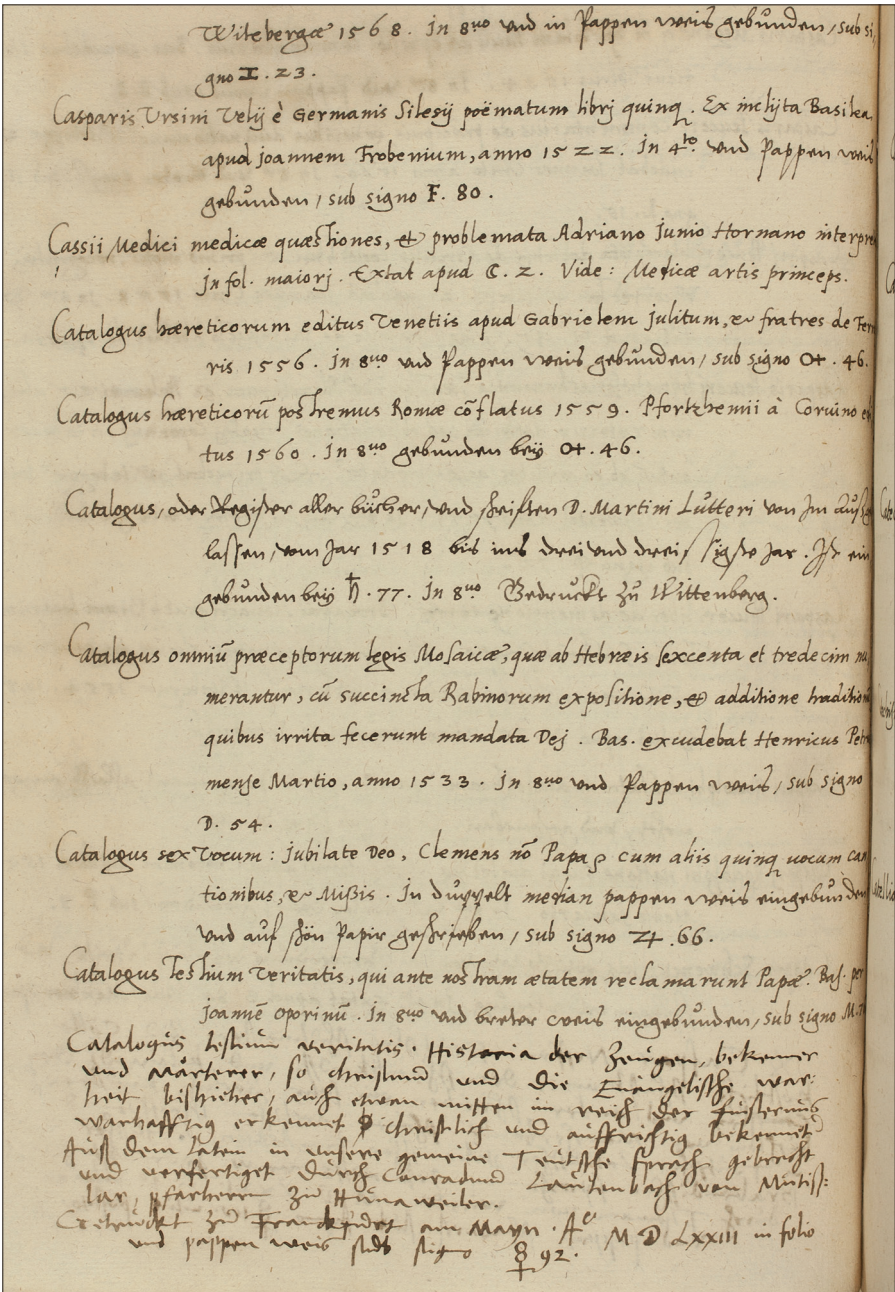 Witebergæ 1568. In 8uo vnd in Pappen weis gebunden, sub si,
gno I. 23.
Casparis Ursini Velij è Germanis Silesij poëmatum librj quinq. Ex inclyta Basilea
apud joannem Frobenium, anno 1522. In 4to vnd Pappen weis
gebunden, sub signo F. 80.
Cassii Medici medicæ quæstiones, et problemata Adriano Junio Hornano interpre
In fol. maiorj. Extat apud C. 2. Vide: Medicæ artis princeps.
Catalogus hæreticorum editus Venetiis apud Gabrielem julitum, & fratres de Fer
ris 1556. In 8uo vnd Pappen weis gebunden, sub signo 4. 46.
Catalogus hæreticorū postremus Romæ cōflatus 1559. Pfortzhemii à Coruino
tus 1560. In 8uo gebunden bey 4. 46.
Catalogus, oder Register aller bücher, vnd schrifften D. Martini Lutteri von Im
lassen, vom Jar 1518 bis ins drei vnd dreissigste Jar. Ist ein
gebunden bey ♄. 77. In 8uo Gedruckt zu Wittenberg.
Catalogus omniū præceptorum legis Mosaicæ, quæ ab Hebræis sexcenta et tredecim nu
merantur, cū succincta Rabinorum expositione, et additione traditionū
quibus irrita fecerunt mandata Dej. Bas. excudebat Henricus Petr
mense Martio, anno 1533. In 8uo vnd Pappen weis, sub signo
D. 54.
Catalogus sex Vocum: jubilate Deo, Clemens nō Papa cum aliis quinq uocum can
tionibus, & Mißis. In duppelt median pappen weis eingebunden
vnd auf schön Papir geschrieben, sub signo ♃. 66.
Catalogus Testium Veritatis, qui ante nostram ætatem reclamarunt Papæ. Bas. per
joannē Oporinū. In 8uo vnd breter weis eingebunden, sub signo M.
Catalogus testium veritatis. Historia der Zeugen, bekenner
vnd Märterer, so christum vnd die Euangelische war:
heit bishieher, auch etwan mitten im reich der finsternus
warhafftig erkennet christlich vnd auffrichtig bekennet
Auß dem Latein in vnsere gemeine Teutsche sprach gebracht
vnd verfertiget durch Conradum Lautenbach von Mutiß:
lar, pfarherrn zu Hunaweiler.
Getruckt zu Franckfurt am Mayn. Ao MD LXXIII in folio
vnd pappen weis sub signo 92.